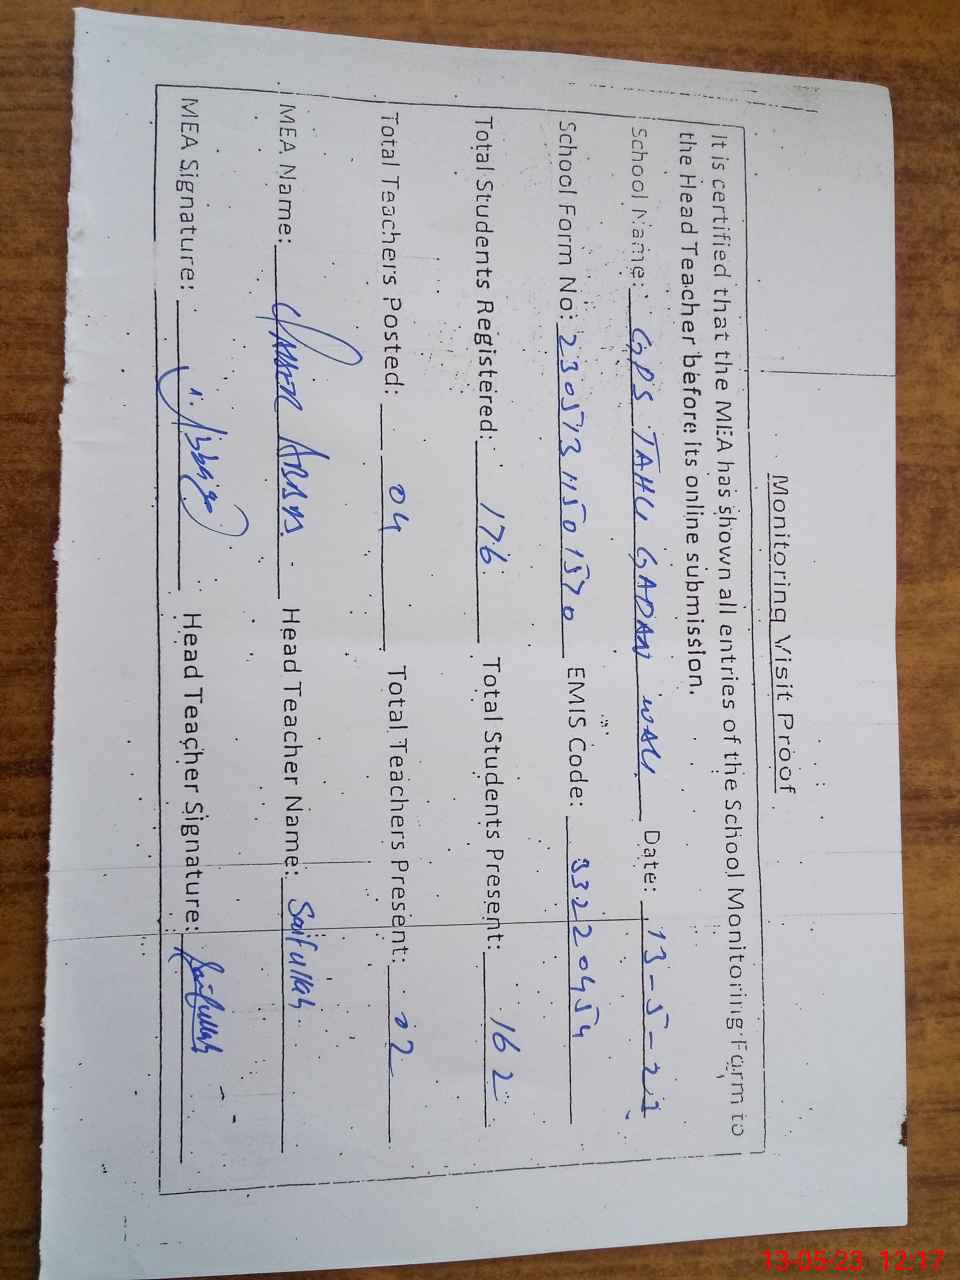 Monitoring Visit Proof
It is certified that the MEA has shown all entries of the School Monitoring Form to
the Head Teacher before its online submission.
School Name: GPS TAHLI GADAN WALI Date: 13-5-23
School Form No: 23051311501570 EMIS Code: 33220454
Total Students Registered: 176 Total Students Present: 162
Total Teachers Posted: 04 Total Teachers Present: 02
MEA Name: Head Teacher Name: Saifullah
MEA Signature: Head Teacher Signature: Saifullah
13-05-23 12:17